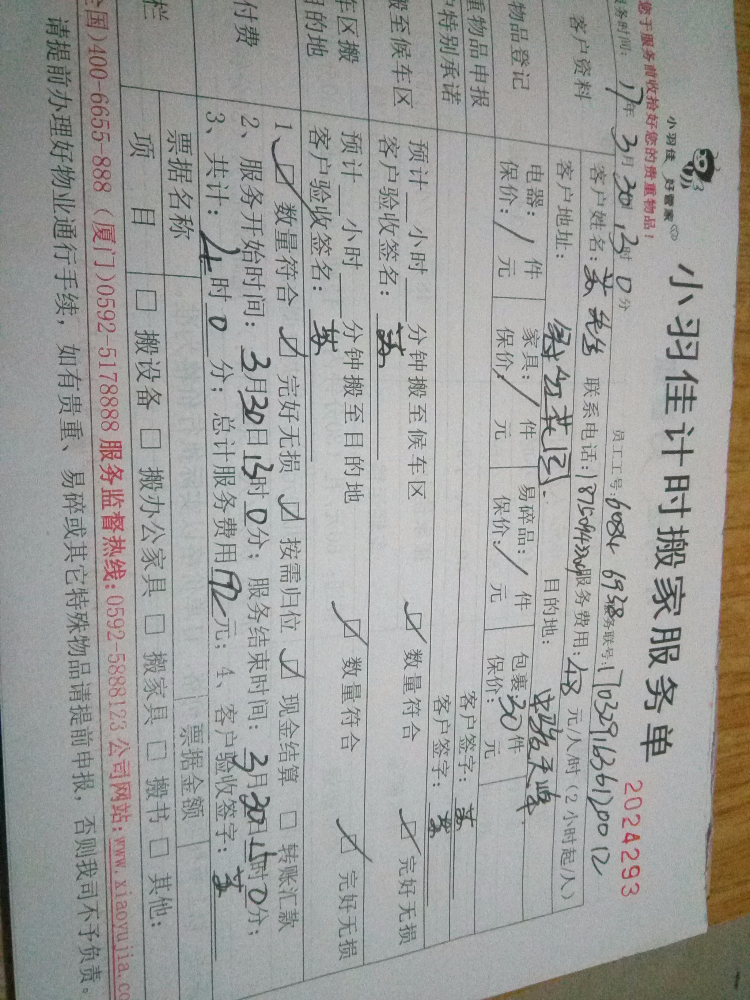 小羽佳 好管家
小羽佳计时搬家服务单
2024293
您于服务前收拾好您的贵重物品!
服务时间: 17年3月30日13时0分 员工工号: 6084 6938 服务联号: 1703291636120012
客户资料
客户姓名: 苏先生 联系电话: 服务费用: 48 元/人/时 (2小时起/人)
客户地址: 目的地:
物品登记
电器: / 件 家具: / 件 易碎品: / 件 包裹: 30 件
保价: / 元 保价: / 元 保价: / 元 保价: 元
重物品申报 客户签字: 苏
户特别承诺 客户签字: 苏
搬至候车区
预计__小时__分钟搬至候车区 ☑ 数量符合 ☑ 完好无损
客户验收签名: 苏
车区搬
目的地
预计__小时__分钟搬至目的地 ☑ 数量符合 ☑ 完好无损
客户验收签名: 苏
付费
1、☑ 数量符合 ☑ 完好无损 ☑ 按需归位 ☑ 现金结算 □ 转账汇款
2、服务开始时间: 3月30日13时0分; 服务结束时间: 3月30日15时0分;
3、共计: 时0分; 总计服务费用192元; 4、客户验收签字: 苏
栏
票据名称 票据金额
项目 □ 搬设备 □ 搬办公家具 □ 搬家具 □ 搬书 □ 其他:
全国)400-6655-888 (厦门)0592-5178888 服务监督热线:0592-5888123 公司网站:www.xiaoyujia.co
请提前办理好物业通行手续, 如有贵重、易碎或其它特殊物品请提前申报, 否则我司不予负责。